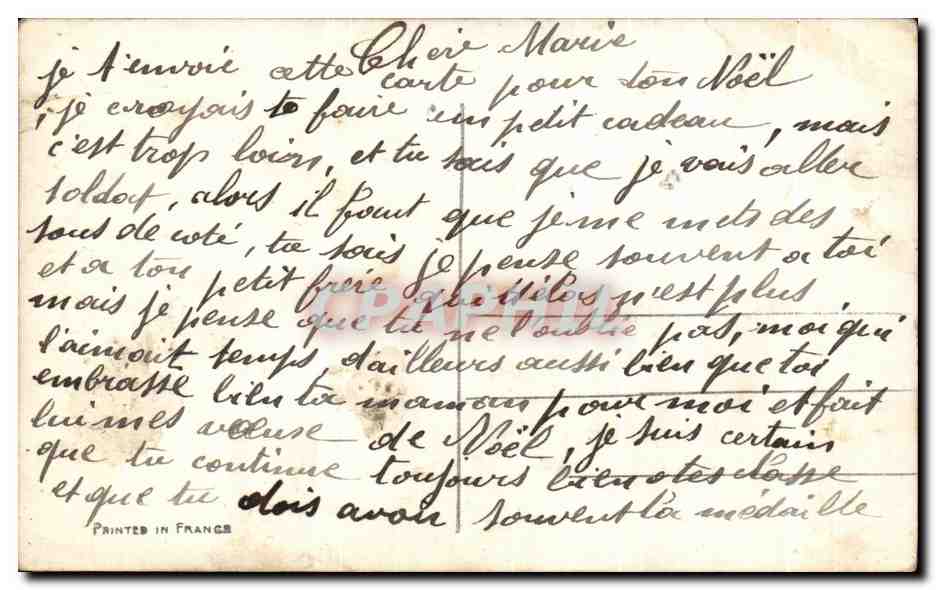 Chère Marie
je t'envoie cette carte pour ton Noël
, je croyais te faire un petit cadeau, mais
c'est trop loion, et tu sais que je vais aller
soldat, alors il faut que je me mets des
sous de coté, tu sais je pense souvent a toi
et a ton petit frère qui Hélas n'est plus
mais je pense que tu ne l'oublie pas, moi qui
l'aimait temps, d'ailleurs aussi bien que toi
embrasse bien ta maman pour moi et fait
lui mes voeuse de Noël, je suis certain
que tu continue toujours bien a tes classe
et que tu dois avoir souvent la médaille
PRINTED IN FRANCE
CPAPHIL